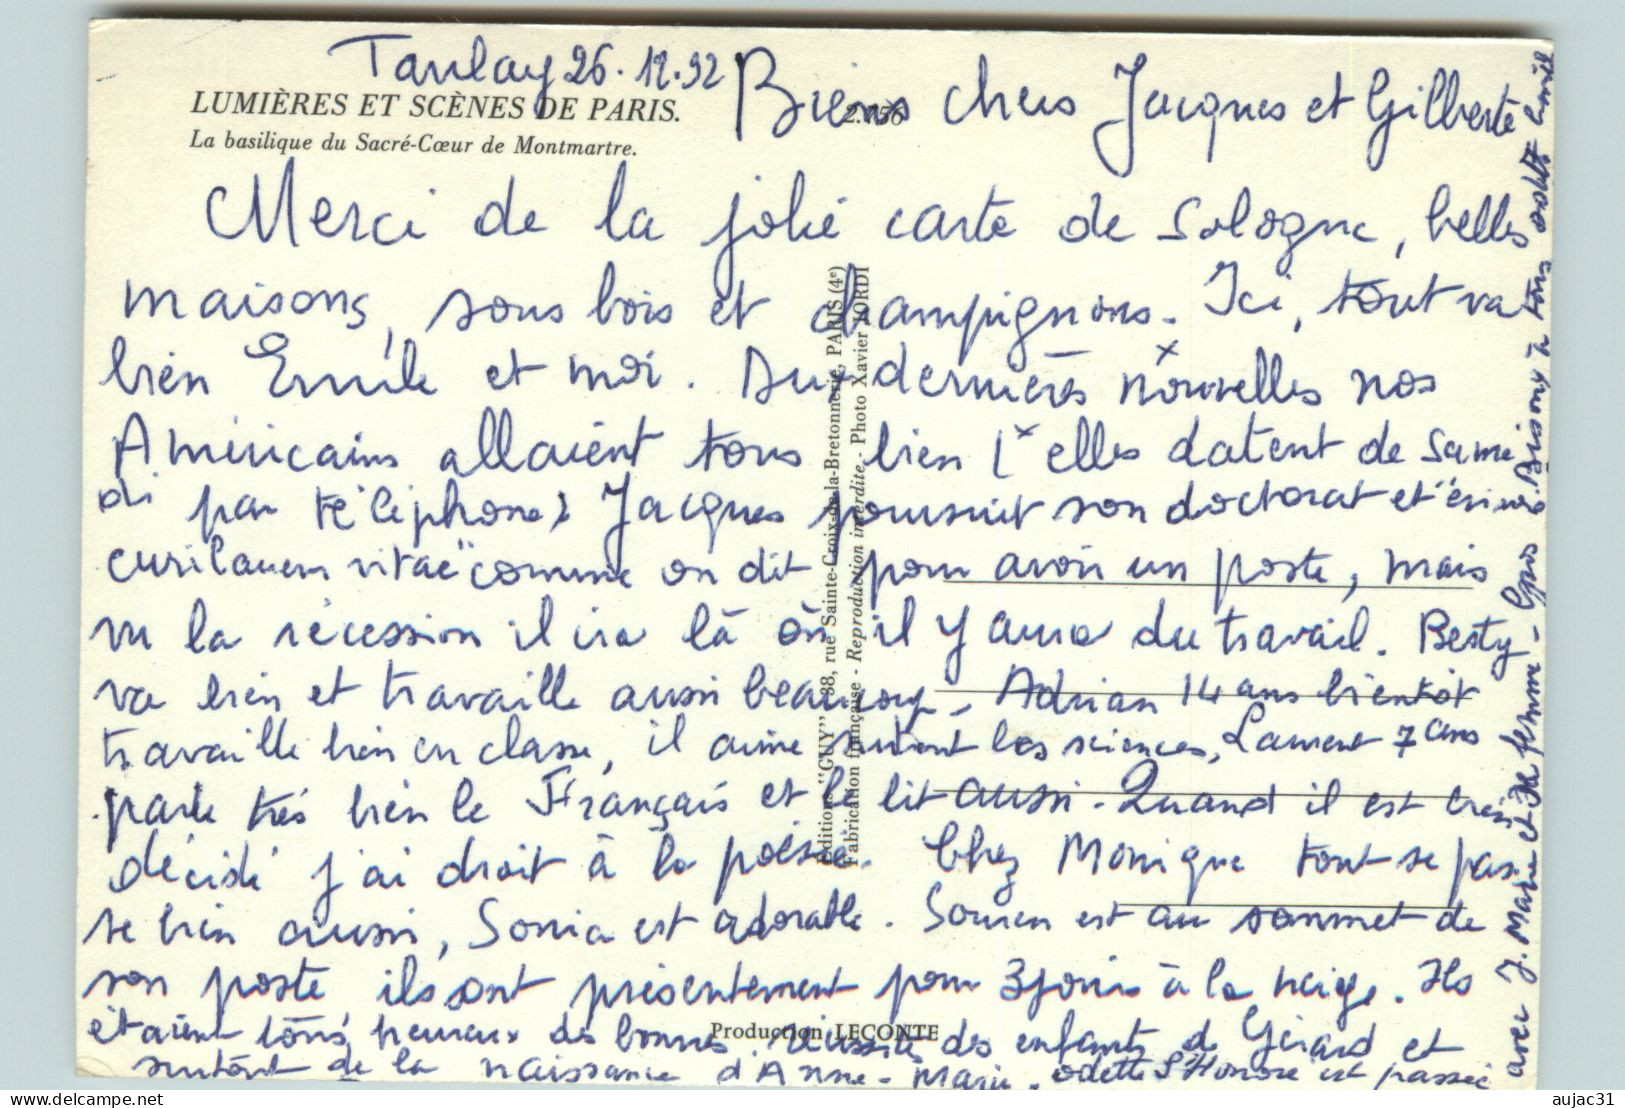 Tanlay 26.12.92
LUMIÈRES ET SCÈNES DE PARIS.
La basilique du Sacré-Cœur de Montmartre.
Biens chers Jacques et Gilberte
Merci de la jolie carte de Sologne, belles
maisons, sous bois et champignons. Ici, tout va
bien Emile et moi. Aux dernières nouvelles nos
Américains allaient tous bien (x elles datent de same
di par téléphone) Jacques poursuit son doctorat et
curilauem vitae" comme on dit, pour avoir un poste, mais
vu la récession il ira là où il y aura du travail. Besty
va bien et travaille aussi beaucoup. Adrian 14 ans bientôt
travaille bien en classe, il aime surtout les sciences, Laurent 7 ans
parle très bien le Français et le lit aussi. Quand il est bien
décidé j'ai droit à la poésie. Chez Monique tout se pas
se bien aussi, Sonia est adorable. est au sommet de
son poste, ils sont présentement pour 3 jours à la neige. Ils
étaient tous heureux des bonnes réussites des enfants de Gérard et
surtout de la naissance d'Anne-Marie. Odette St Honoré est passée
avec J. Marie et sa femme - Gros Bisous à tous Odette Emile
Editions "GUY" 38, rue Sainte-Croix-de-la-Bretonnerie, PARIS (4e)
Fabrication française - Reproduction interdite - Photo Xavier JORDI
Production LECONTE
delcampe.net
aujac31